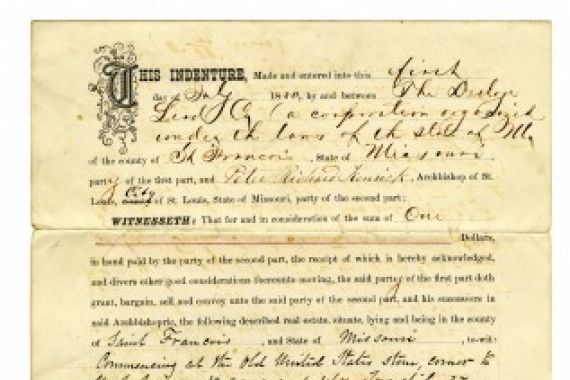 THIS INDENTURE, Made and entered into this first
day of July 1880, by and between The Desloge
Lead Co (a corporation organized
under the laws of the state of Mo
of the county of St Francois, State of Missouri,
party of the first part, and Peter Richard Kenrick, Archbishop of St.
Louis, City of St. Louis, State of Missouri, party of the second part;
WITNESSETH: That for and in consideration of the sum of One
Dollars,
in hand paid by the party of the second part, the receipt of which is hereby acknowledged,
and divers other good considerations thereunto moving, the said party of the first part doth
grant, bargain, sell and convey unto the said party of the second part, and his successors in
said Archbishopric, the following described real estate, situate, lying and being in the county
of Saint Francois, and State of Missouri, to-wit:
Commencing at the Old United States stone, corner to